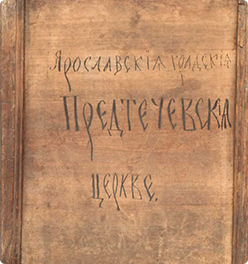 Ярославскія градскія
Предтечевскія
церкве.